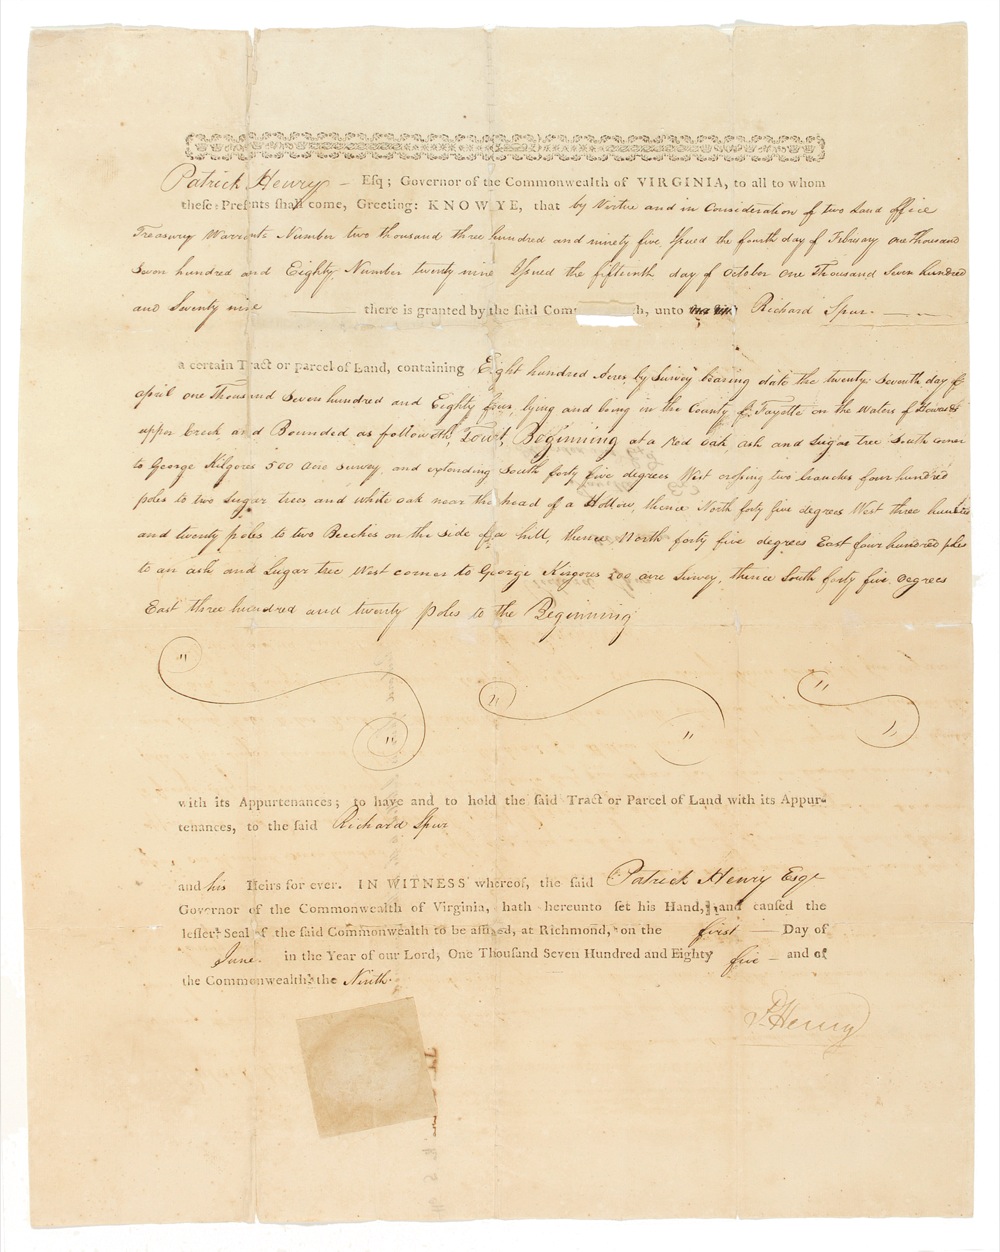 Patrick Henry – Esq; Governor of the Commonwealth of VIRGINIA, to all to whom
these Presents shall come, Greeting: KNOW YE, that by Virtue and in Consideration of two Land office
Treasury Warrants Number two thousand three hundred and ninety five Issued the fourth day of February one Thousand
Seven hundred and Eighty, Number twenty nine Issued the fifteenth day of October One Thousand Seven hundred
and Seventy nine —— there is granted by the said Com h, unto Richard Spur. — —
a certain Tract or parcel of Land, containing Eight hundred Acres by Survey bearing date the twenty Seventh day of
april one Thousand Seven hundred and Eighty four, lying and being in the County of Fayette on the Waters of
upper Creek and Bounded as followeth, Towit, Beginning at a red oak, ash and Sugar tree South corner
to George Kilgores 500 acre Survey, and extending South forty five degrees West crossing two branches four hundred
poles to two Sugar trees and white oak near the head of a Hollow, thence North forty five degrees West three hundred
and twenty poles to two Beeches on the side of a hill, thence North forty five degrees East four hundred poles
to an ash and Sugar tree West corner to George Kirgores 500 acre Survey, thence South forty five degrees
East three hundred and twenty poles to the Beginning
with its Appurtenances; to have and to hold the said Tract or Parcel of Land with its Appur-
tenances, to the said Richard Spur
and his Heirs for ever. IN WITNESS whereof, the said Patrick Henry Esqr
Governor of the Commonwealth of Virginia, hath hereunto set his Hand, and caused the
lesser Seal of the said Commonwealth to be affixed, at Richmond, on the first — Day of
June. in the Year of our Lord, One Thousand Seven Hundred and Eighty five – and of
the Commonwealth the Ninth.
P. Henry